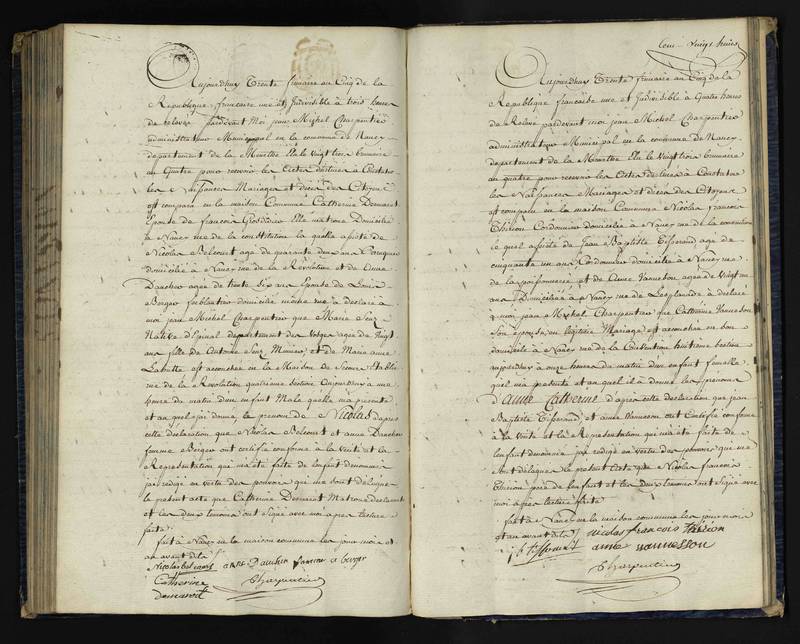 Aujourdhuy Trente frimaire an Cinq de la
République française une et Indivisible à trois heures
de relevée pardevant Moi jean Michel Charpentier
administrateur Municipal en la commune de Nancy
departement de la Meurthe Elu le vingt trois brumaire
an Quatre pour recevoir les Actes destinés à Constater
les Naissances Mariages et décès des Citoyens
est comparu en la maison Commune Catherine
Epouse de françois Matrone Domiciliée
à Nancy rue de la constitution la quelle assistée de
Nicolas Belcourt agé de quarante deux ans
domicilié à Nancy rue de la Révolution et de Anne
Dauchez agée de trente six ans Epouse de Louis
Berger ferblantier domiciliée même rue a déclaré à
moi jean Michel Charpentier que Marie
Native d'Epinal departement des Vosges agée de vingt
ans fille de Antoine et de Marie anne
est accouchée en la Maison de Secours Etablie
rue de la Révolution quatrième Section Cejourdhui à une
heure du matin d'un Enfant Male quelle m'a présenté
et auquel j'ai donné le prenom de Nicolas d'après
cette déclaration que Nicolas Belcourt et anne Dauchez
femme Berger ont certifié conforme à la vérité et la
Représentation qui m'a été faite de lenfant denommé
jai redigé en vertu des pouvoirs qui me sont délégués
le présent acte que Catherine Matrone declarant
et les deux temoins ont Signé avec moi après lecture
faite
fait à Nancy en la maison commune les jour mois et
an avant dits
Nicolas Belcourt anne Dauchez famme a berger
Catherine Charpentier
Cent vingt huit
Aujourdhuy Trente frimaire an Cinq de la
République française une et Indivisible à Quatre heures
de Relevée pardevant moi jean Michel Charpentier
administrateur Municipal en la commune de Nancy
departement de la Meurthe Elu le vingt trois brumaire
an quatre pour recevoir les Actes destinés à Constater
les Naissances Mariages et décès des Citoyens
est comparu en la maison Commune Nicolas françois
Thirion Cordonnier domicilié à Nancy rue de la constitution
le quel assisté de Jean Baptiste Tisserand agé de
cinquante un ans Cordonnier domicilié à Nancy rue
de la poissonnerie et de Anne Vanneson agée de vingt un
ans Domiciliée à Nancy rue de a déclaré
à moi jean Michel Charpentier que Catherine Vanneson
Son épouse en légitime Mariage est accouchée en son
domicile à Nancy rue de la Constitution huitième Section
aujourdhui à onze heures du matin d'un enfant femelle
quel m'a présenté et au quel il a donné les prenoms
d'anne Catherine d'après cette declaration que jean
Baptiste Tisserand et anne Vannesson ont Certifié conforme
à la vérité et la Représentation qui m'a été faite de
lenfant denommé jai redigé en vertu des pouvoirs qui me
sont délégués le présent acte que Nicolas françois
Thirion père de lenfant et les deux temoins ont Signé avec
moi après lecture faite
fait à Nancy en la maison commune les jour mois
et an avant dits nicolas françois thirion
anne vannesson
Charpentier